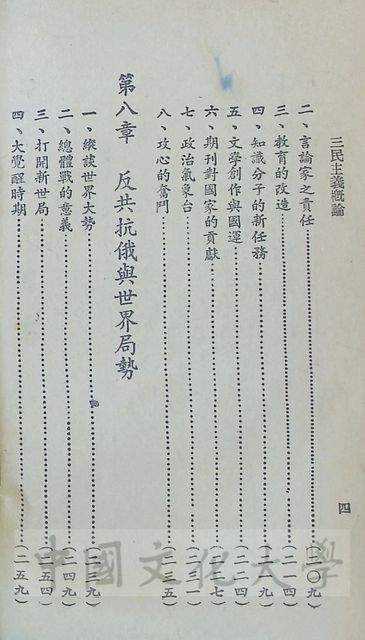 三民主義概論
四
二、言論家之責任……(二〇九)
三、教育的改造……(二一四)
四、知識分子的新任務……(二一九)
五、文學創作與國運……(二二四)
六、期刊對國家的貢獻……(二二七)
七、政治氣象台……(二三一)
八、攻心的奮鬥……(二三五)
第八章 反共抗俄與世界局勢
一、縱談世界大勢……(二三九)
二、總體戰的意義……(二四九)
三、打開新世局……(二五四)
四、大覺醒時期……(二五九)
中國文化大學